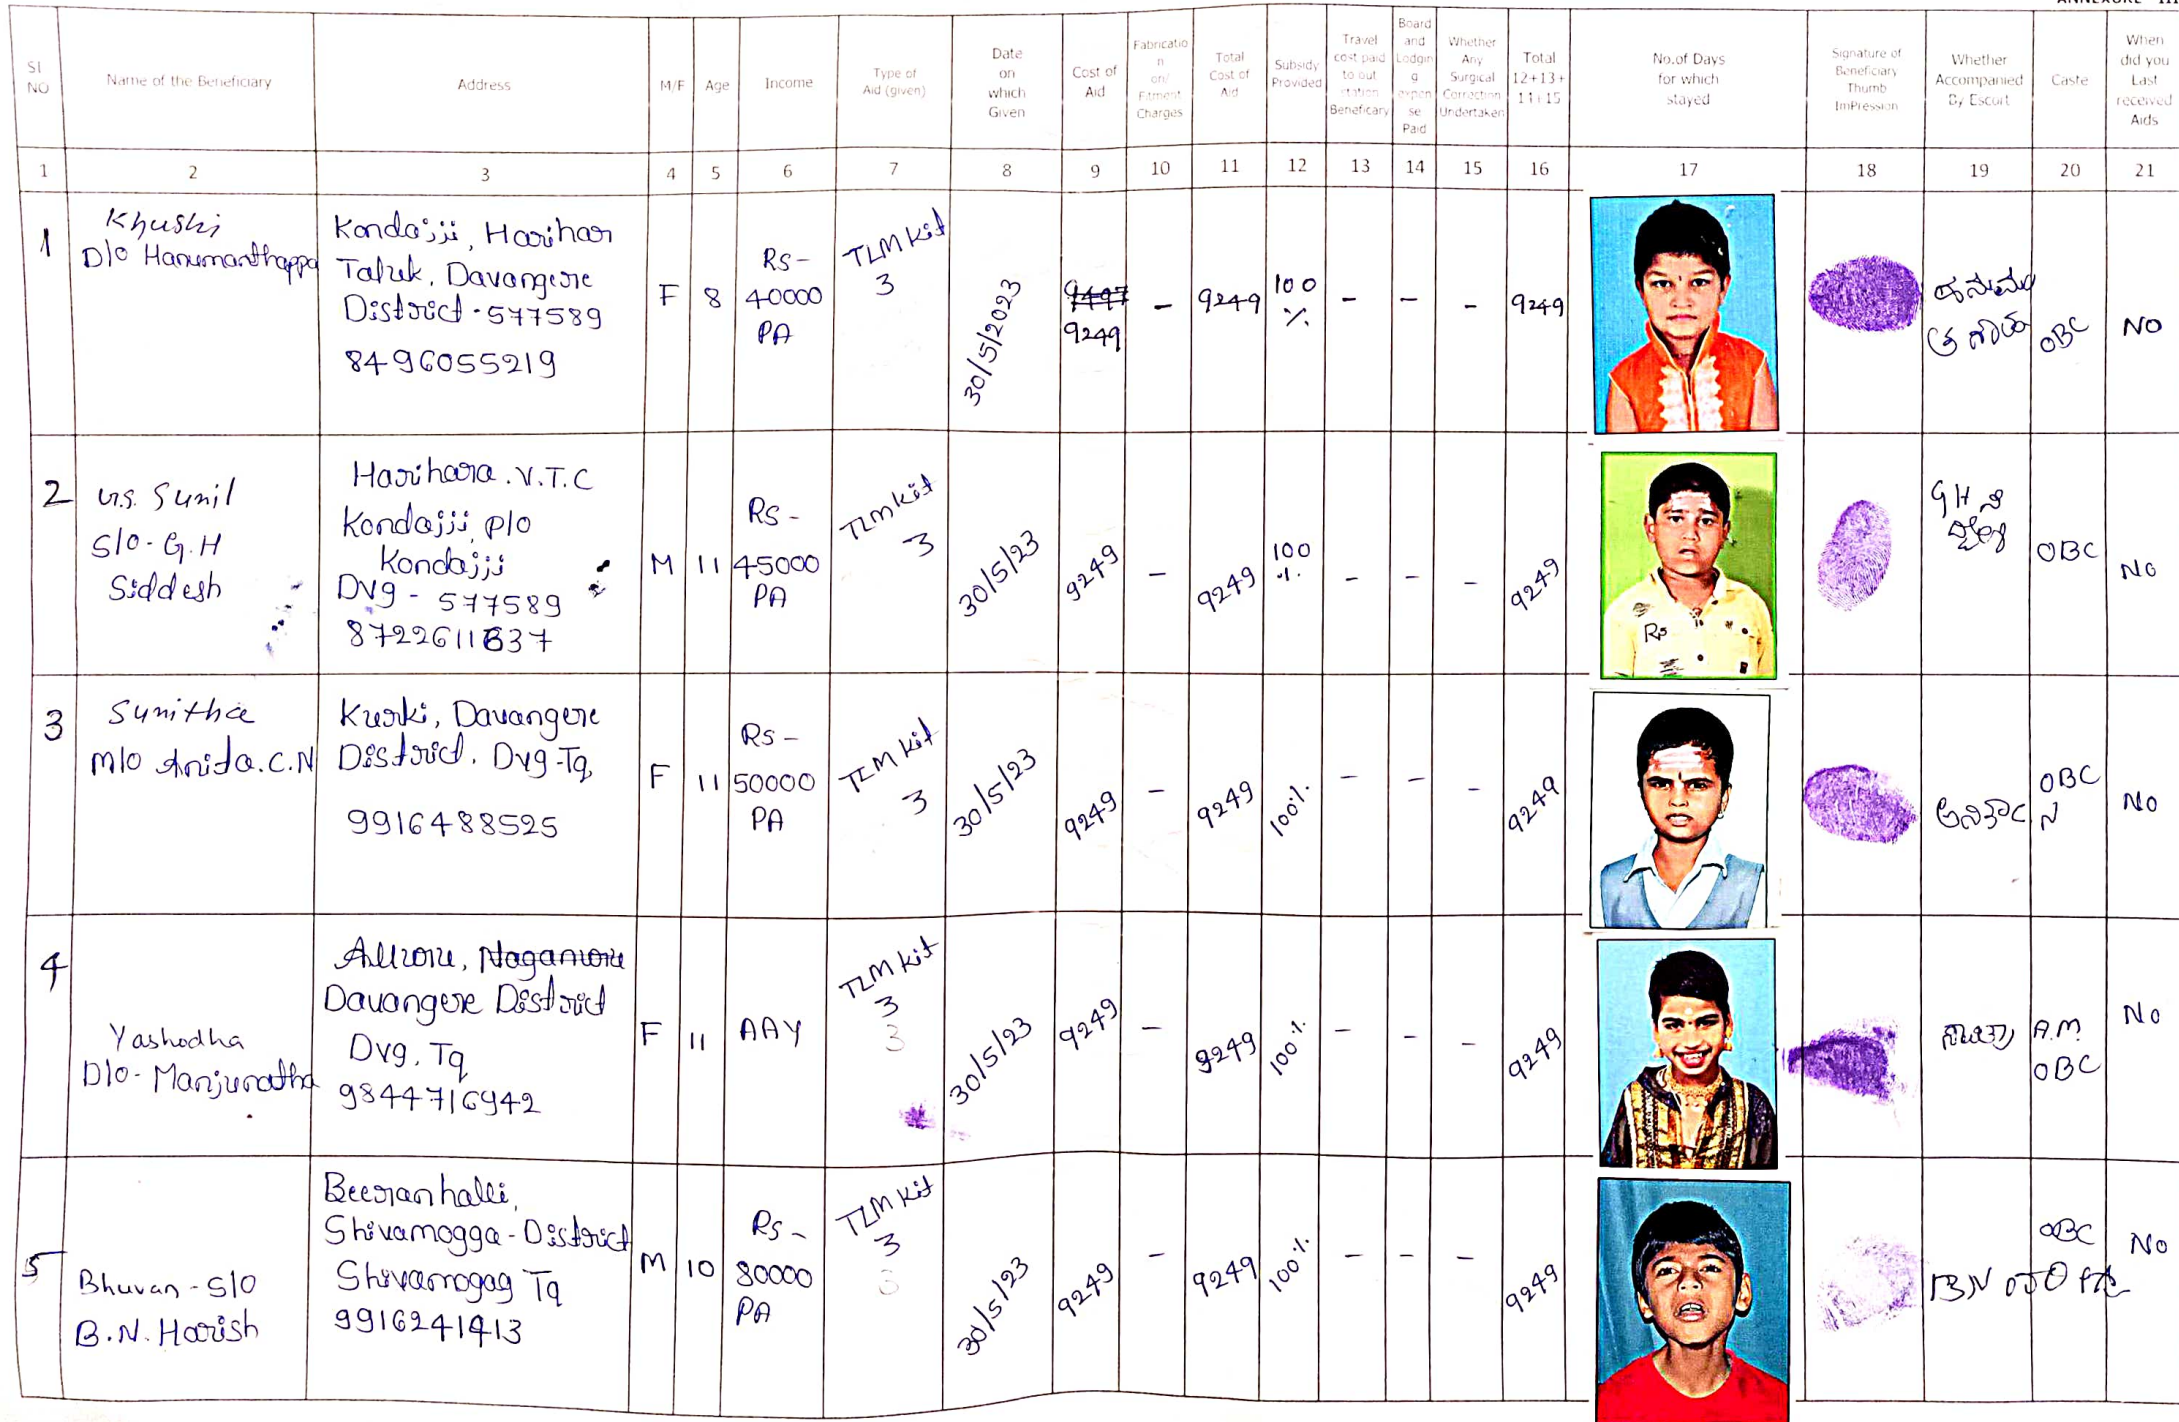 SI NO
Name of the Beneficiary
Address
M/F
Age
Income
Type of
Aid (given)
Date
on
which
Given
Cost of
Aid
Fabricatio
n
on/
Fitment
Charges
Total
Cost of
Aid
Subsidy
Provided
Travel
cost paid
to out
station
Beneficary
Board
and
Lodgin
g
expen
se
Paid
Whether
Any
Surgical
Correction
Undertaken
Total
12+13+
11+15
No.of Days
for which
stayed
Signature of
Beneficiary
Thumb
ImPression
Whether
Accompanied
By Escort
Caste
When
did you
Last
received
Aids
1 2 3 4 5 6 7 8 9 10 11 12 13 14 15 16 17 18 19 20 21
1
Khushi
D/o Hanumanthappa
Kondajji, Harihar
Taluk, Davangere
District - 577589
8496055219
F
8
Rs-
40000
PA
TLM Kit
3
30/5/2023
9497
9249
-
9249
100
%
-
-
-
9249
OBC
NO
2
Sunil
S/o - G.H
Siddesh
Harihara. V.T.C
Kondajji, P/o
Kondajji
Dvg - 577589
M
11
Rs -
45000
PA
TLM Kit
3
30/5/23
9249
-
9249
100
%
-
-
-
9249
Rs
OBC
No
3
Sunitha
M/o Anita. C.N
Kurki, Davangere
District. Dvg-Tq
9916488525
F
11
Rs -
50000
PA
TLM Kit
3
30/5/23
9249
-
9249
100%
-
-
-
9249
OBC
No
4
Yashodha
D/o - Manjunatha
Davangere District
Dvg, Tq
F
11
AAY
TLM Kit
3
3
30/5/23
9249
-
9249
100%
-
-
-
9249
A.M.
OBC
No
5
Bhuvan - S/o
B.N. Harish
Beeranhalli,
Shivamogga - District
Shivamogag Tq
9916241413
M
10
Rs -
80000
PA
TLM Kit
3
3
30/5/23
9249
-
9249
100%
-
-
-
9249
OBC
No